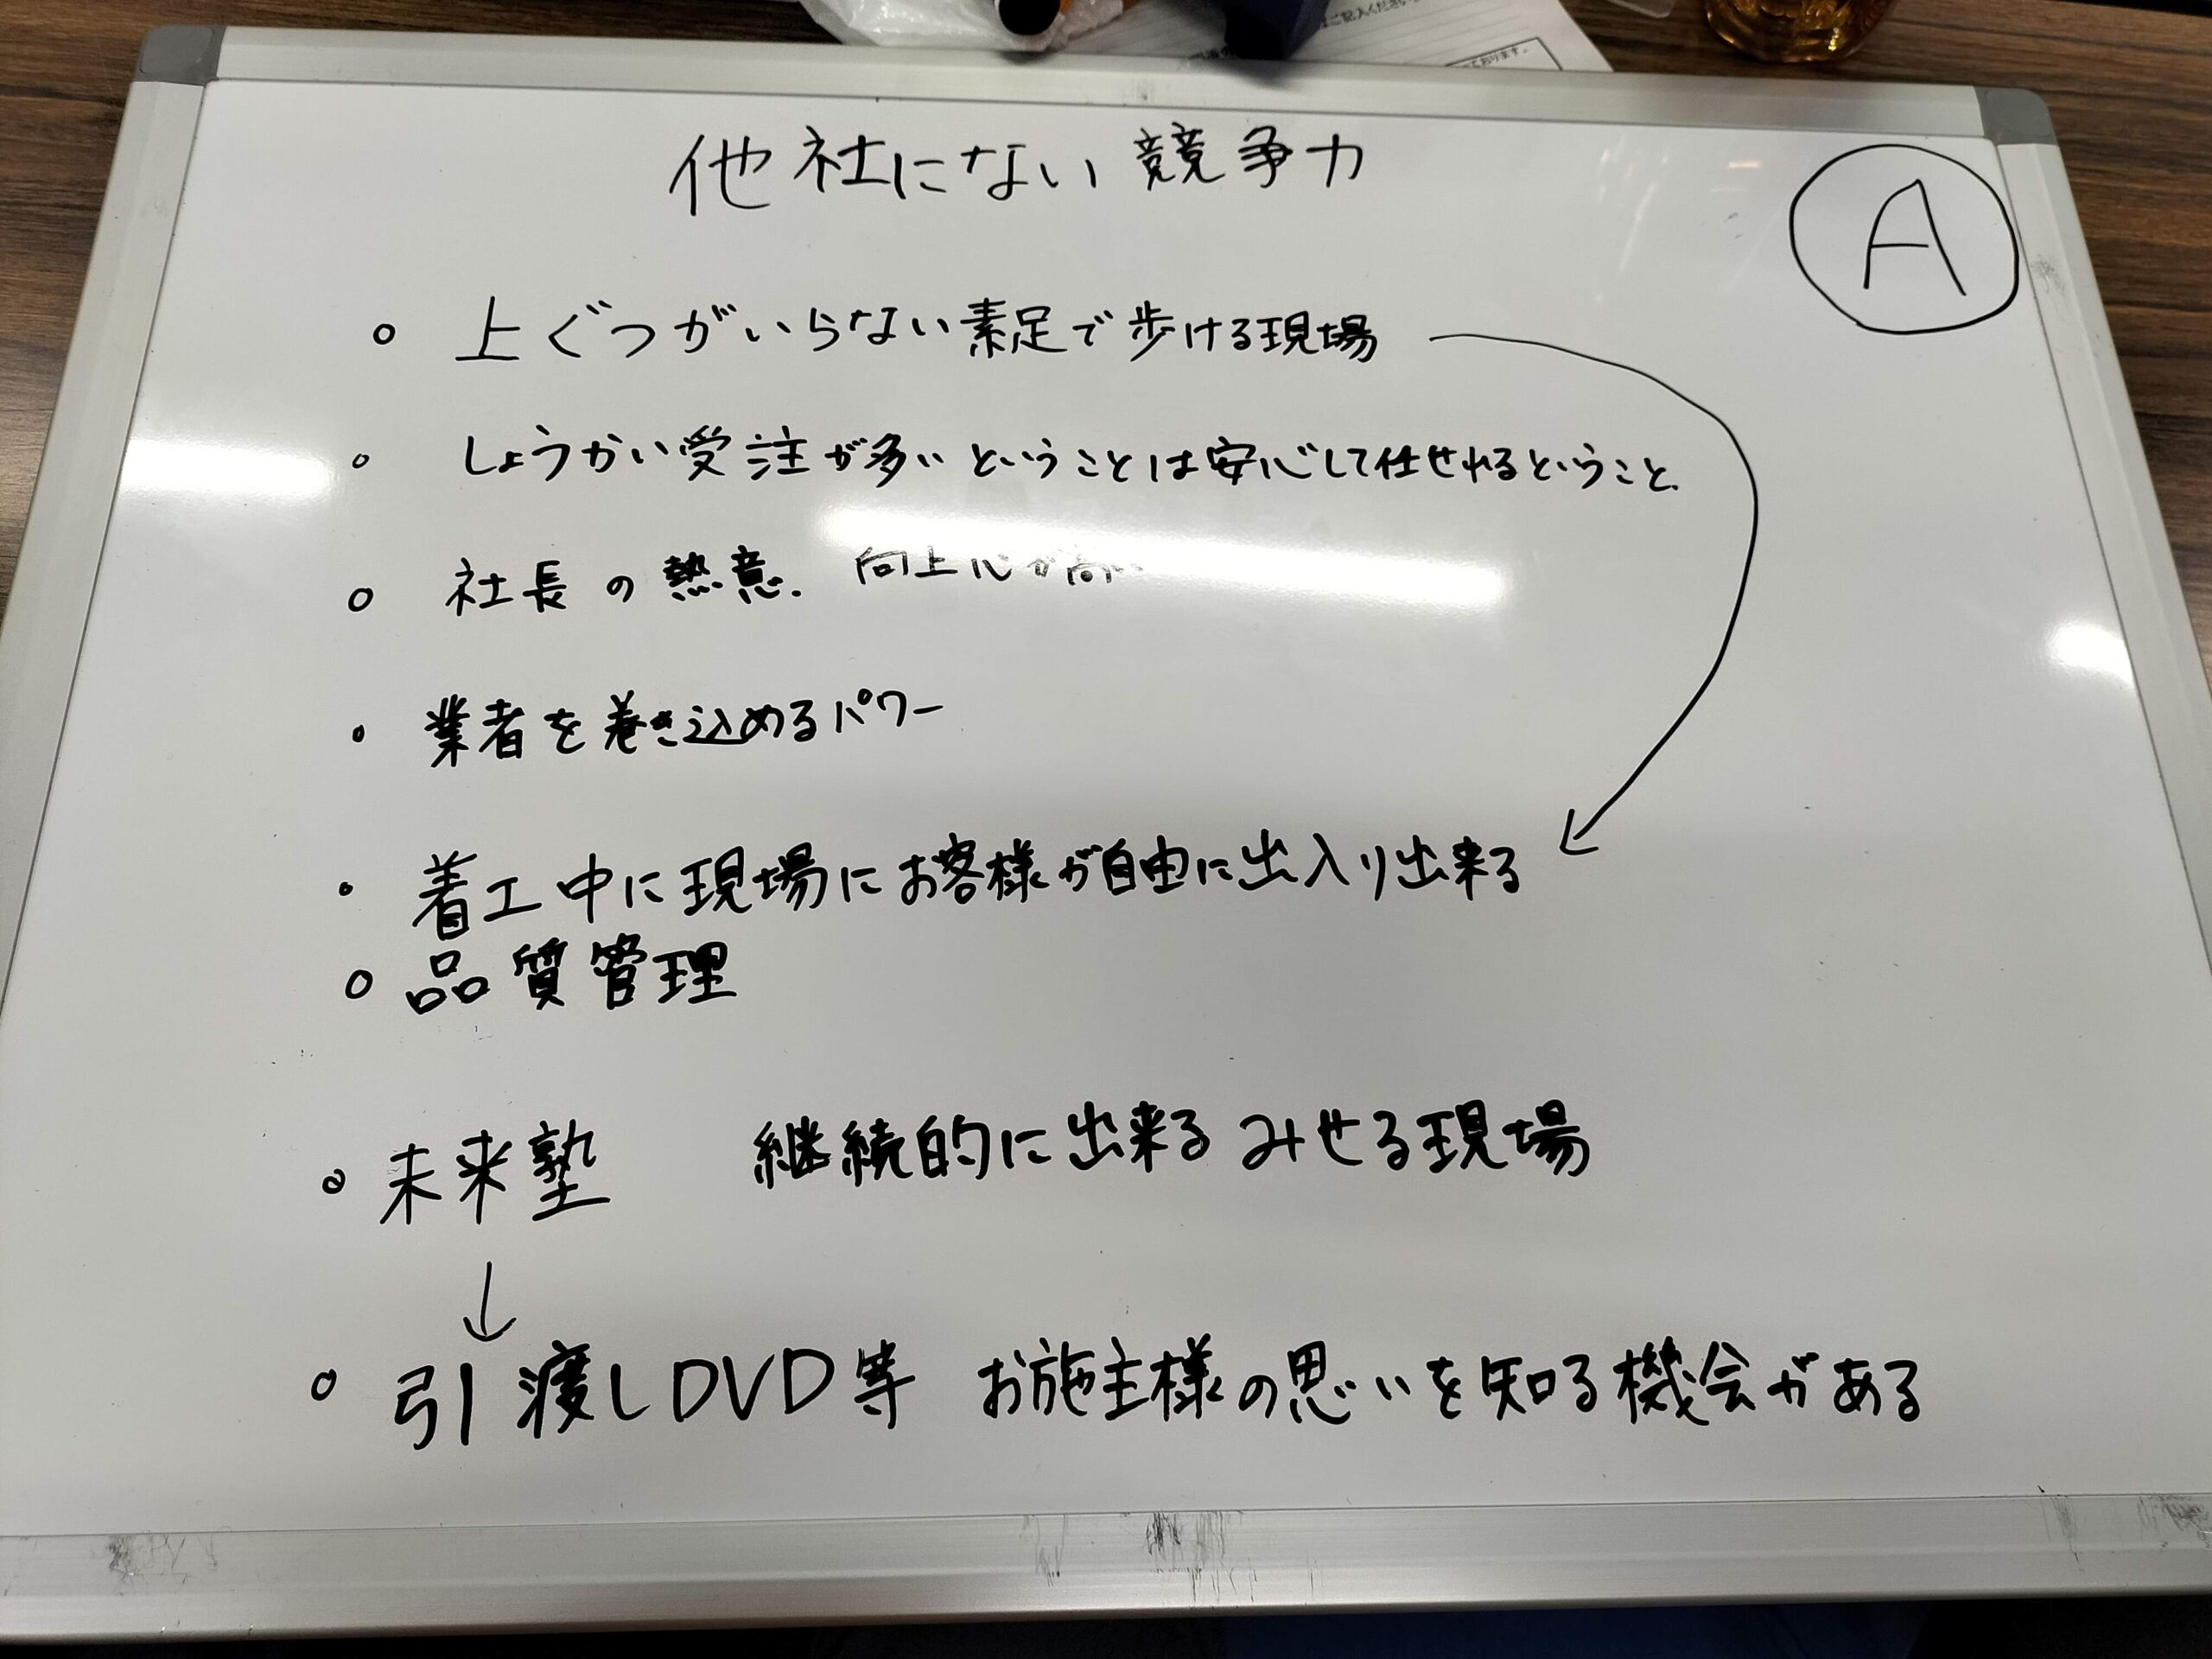 はご記入ください
ております。
他社にない競争力
A
○ 上ぐつがいらない素足で歩ける現場
○ しょうかい受注が多いということは安心して任せれるということ.
○ 社長の熱意. 向上心が高い
○ 業者を巻き込めるパワー
○ 着工中に現場にお客様が自由に出入り出来る
○ 品質管理
○ 未来塾 継続的に出来る みせる現場
↓
○ 引渡しDVD等 お施主様の思いを知る機会がある